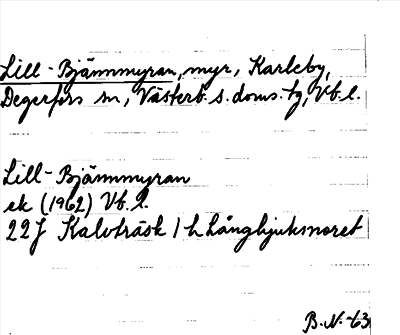 Lill-Bjännmyran, myr, Karleby,
Degerfors sn, Västerb. s. doms. tg, Vb. l.
Lill-Bjännmyran
ek (1962) Vb. l.
22J Kalvträsk 1 h Långbjuksnoret
B.N.-63